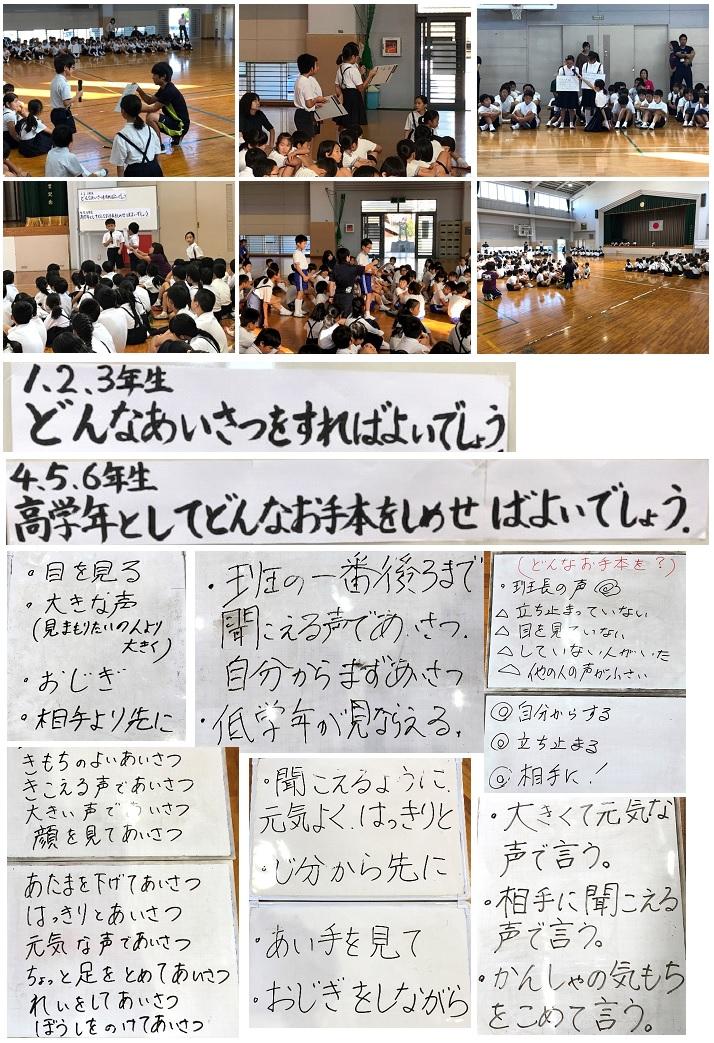 1、2、3年生
どんなあいさつをすればよいでしょう
4.5.6年生
高学年としてどんなお手本をしめせばよいでしょう.
・目を見る
・大きな声
(見まもりたいの人より
大きく)
・おじぎ
・相手より先に
・班の一番後ろまで
聞こえる声であいさつ.
自分からまずあいさつ
・低学年が見ならえる.
(どんなお手本を?)
・班長の声◎
△立ち止まっていない
△目を見ていない
△していない人がいた
△他の人の声が小さい
◎自分からする
◎立ち止まる
◎相手に!
きもちのよいあいさつ
きこえる声であいさつ
大きい声であいさつ
顔を見てあいさつ
あたまを下げてあいさつ
はっきりとあいさつ
元気な声であいさつ
ちょっと足をとめてあいさつ
れいをしてあいさつ
ぼうしをのけてあいさつ
・聞こえるように
元気よく.はっきりと
・じ分から先に
・あい手を見て
・おじぎをしながら
・大きくて元気な
声で言う。
・相手に聞こえる
声で言う。
・かんしゃの気もち
をこめて言う。